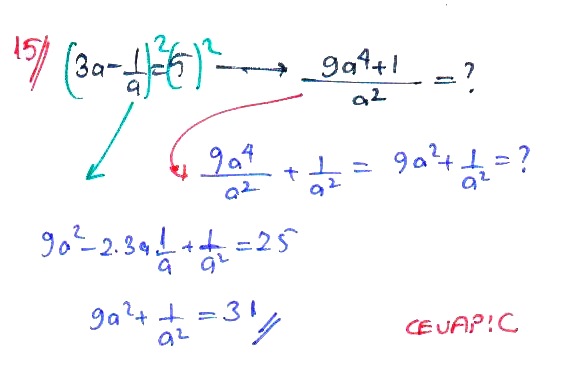 15// (3a - 1/a)² = (5)² → (9a⁴+1)/a² = ?
9a⁴/a² + 1/a² = 9a² + 1/a² = ?
9a² - 2.3a 1/a + 1/a² = 25
9a² + 1/a² = 31 //
CEVAP:C